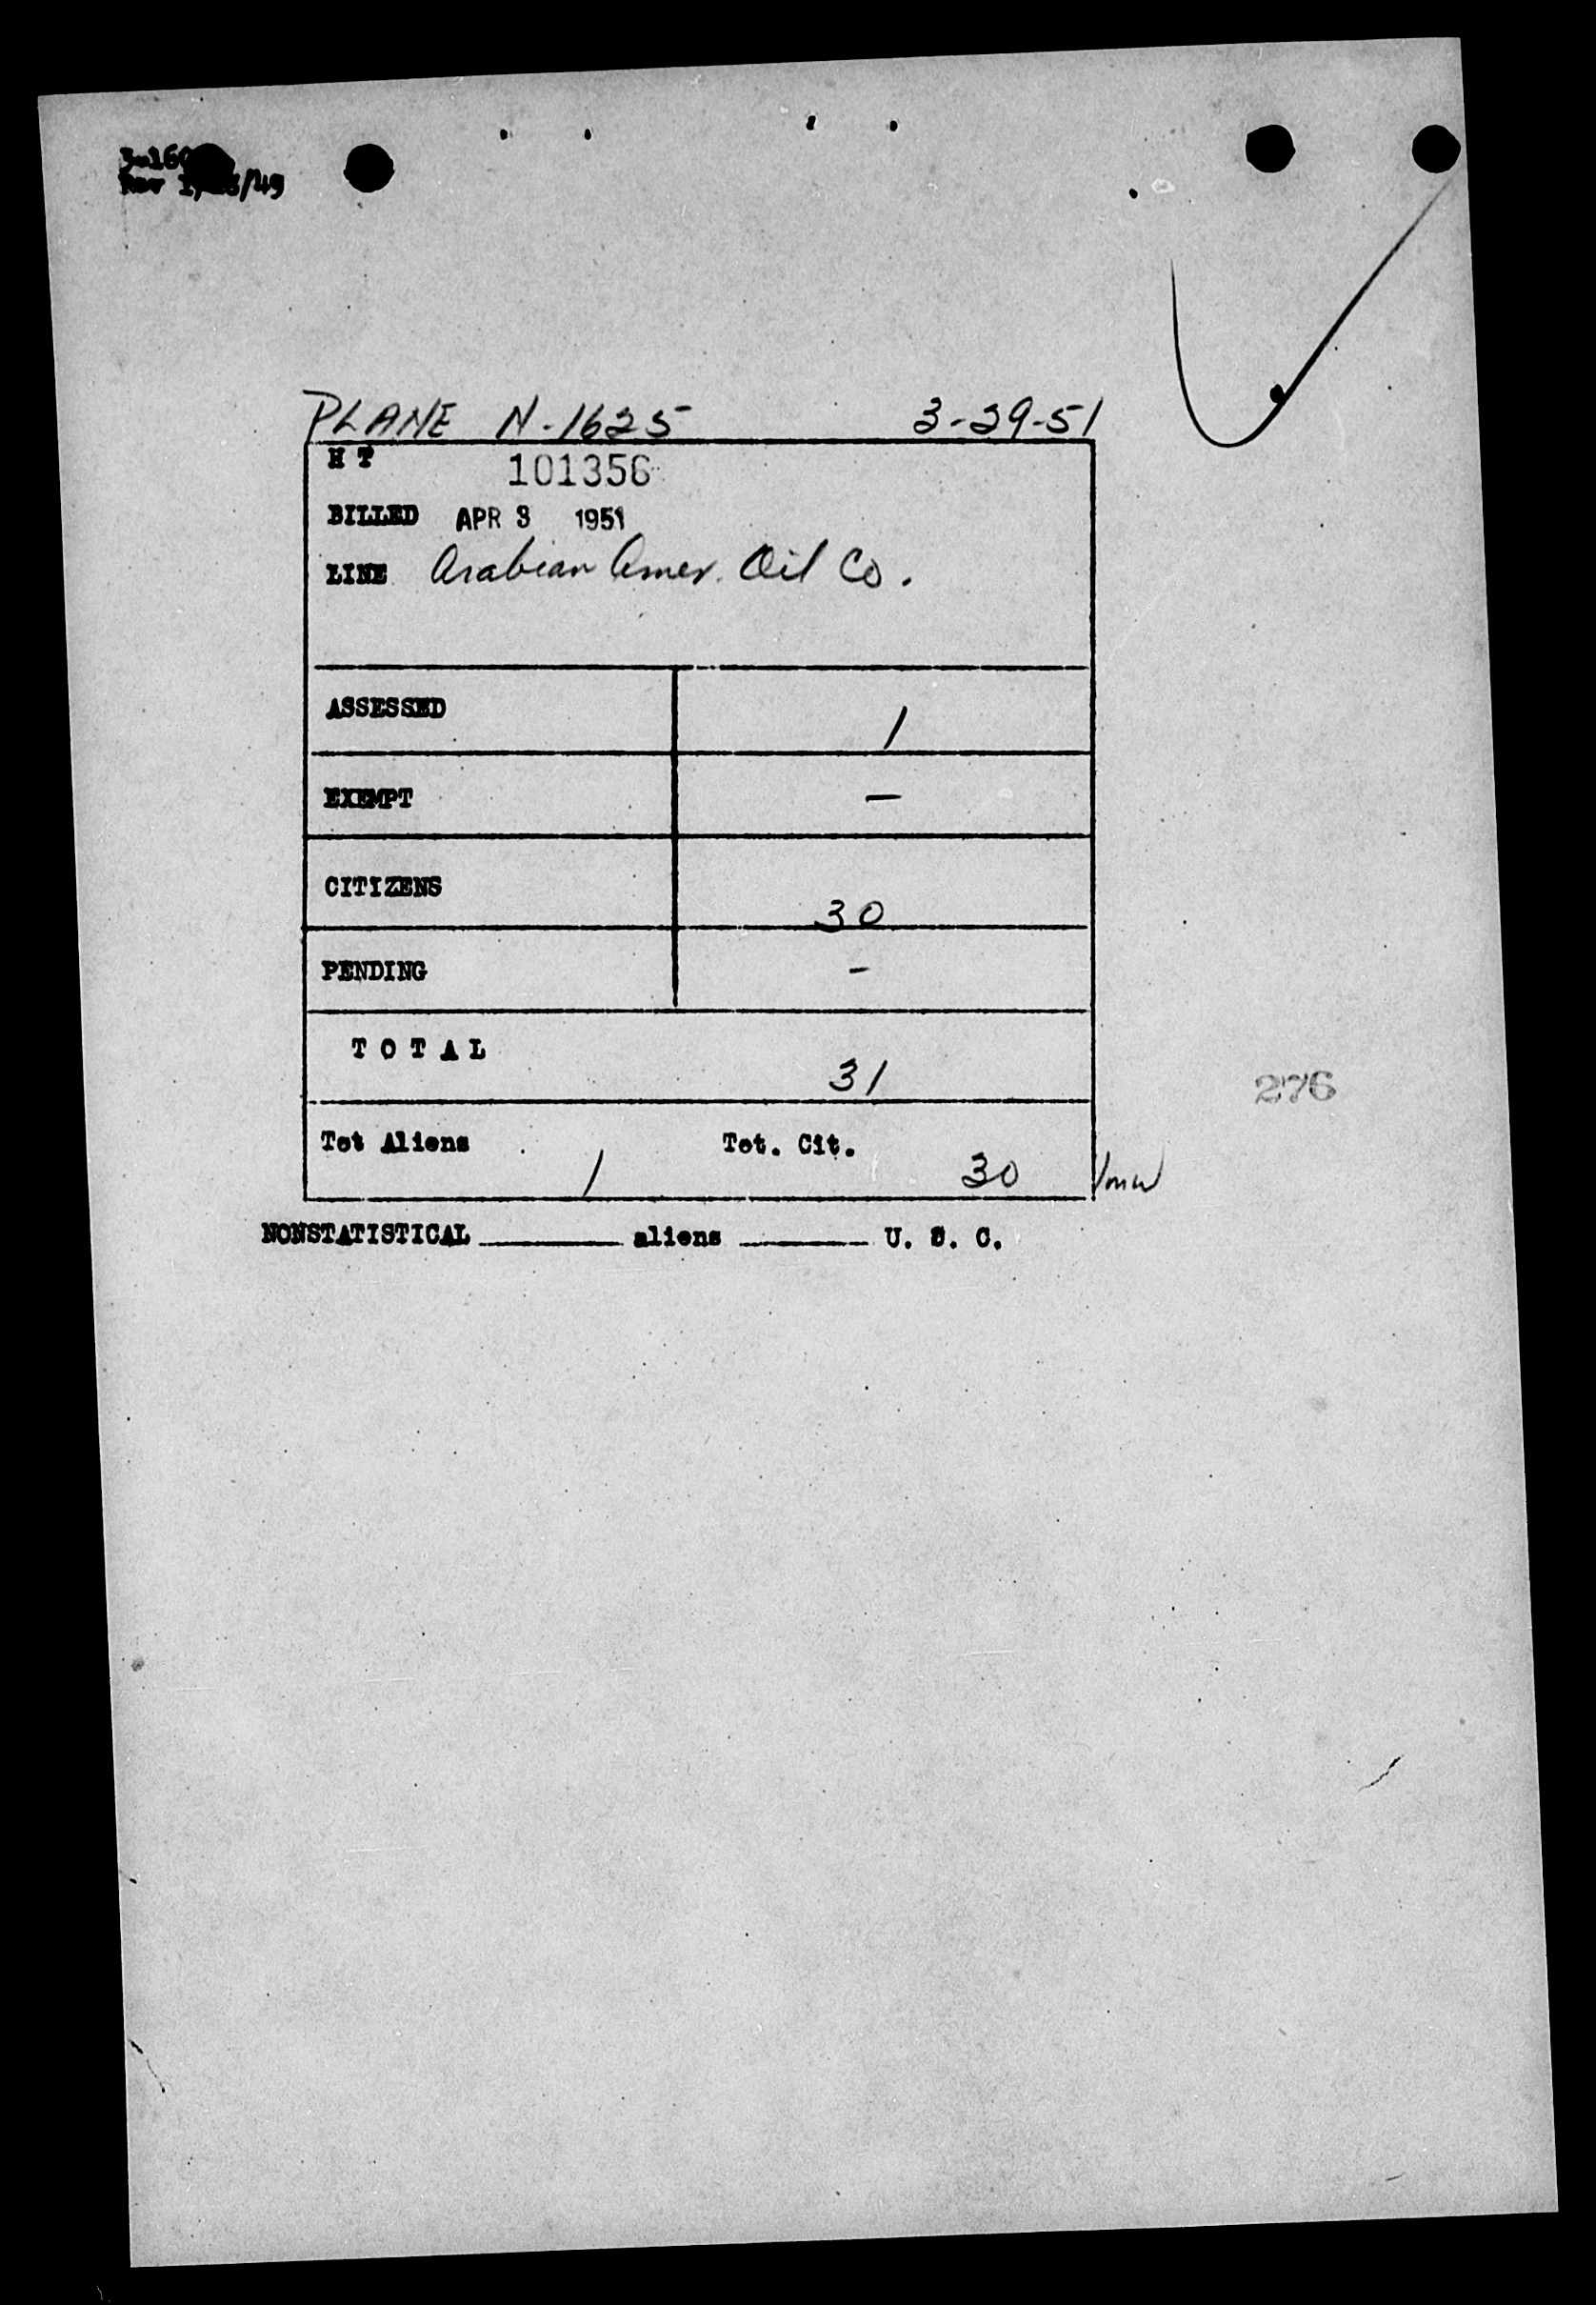 PLANE N-1625 3-29-51
H T 101356
BILLED APR 3 1951
LINE Arabian Amer. Oil Co.
ASSESSED 1
EXEMPT —
CITIZENS 30
PENDING -
TOTAL 31
276
Tot Aliens 1 Tot. Cit. 30
NONSTATISTICAL ______ aliens ______ U. S. C.